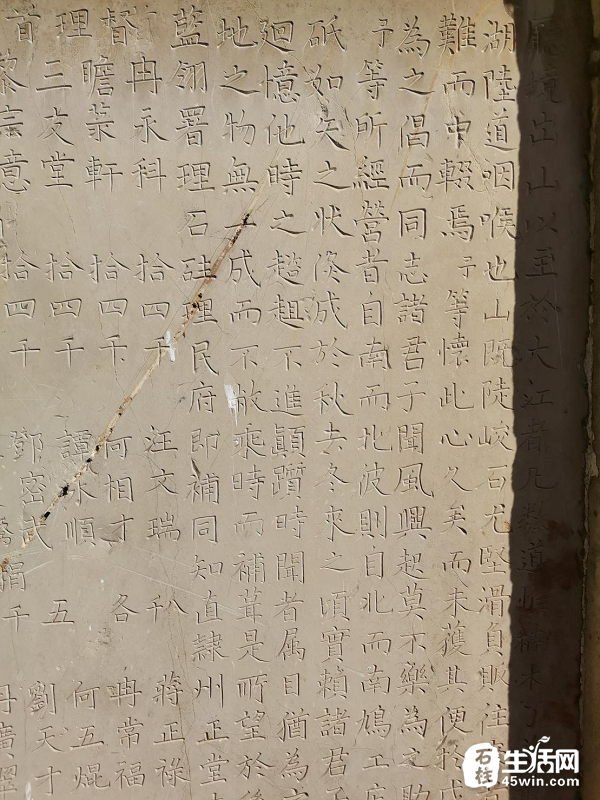 境出山以至於大江者凡數道
湖陸道咽喉也山既陡峻石尤堅滑負販往
難而中輟焉予等懷此心久矣而未獲其便於
為之倡而同志諸君子聞風興起莫不樂為之
予等所經營者自南而北彼則自北而南鳩工
砥如矢之狀浚成於秋去冬來之頃實賴諸君
迴憶他時之趑趄不進顛躓時聞者属目猶為
地之物無一成而不敝乘時而補葺是所望於
藍翎署理石砫理民府即補同知直隸州正堂
冉永科 拾四千 汪文瑞 八千 蔣正祿
督 瞻菉軒 拾四千 何相才 各 冉常福
理 三友堂 拾四千 譚永順 五 何五焜
首 黎宗意 拾四千 鄧密武 千 劉天才
石柱生活网
45win.com